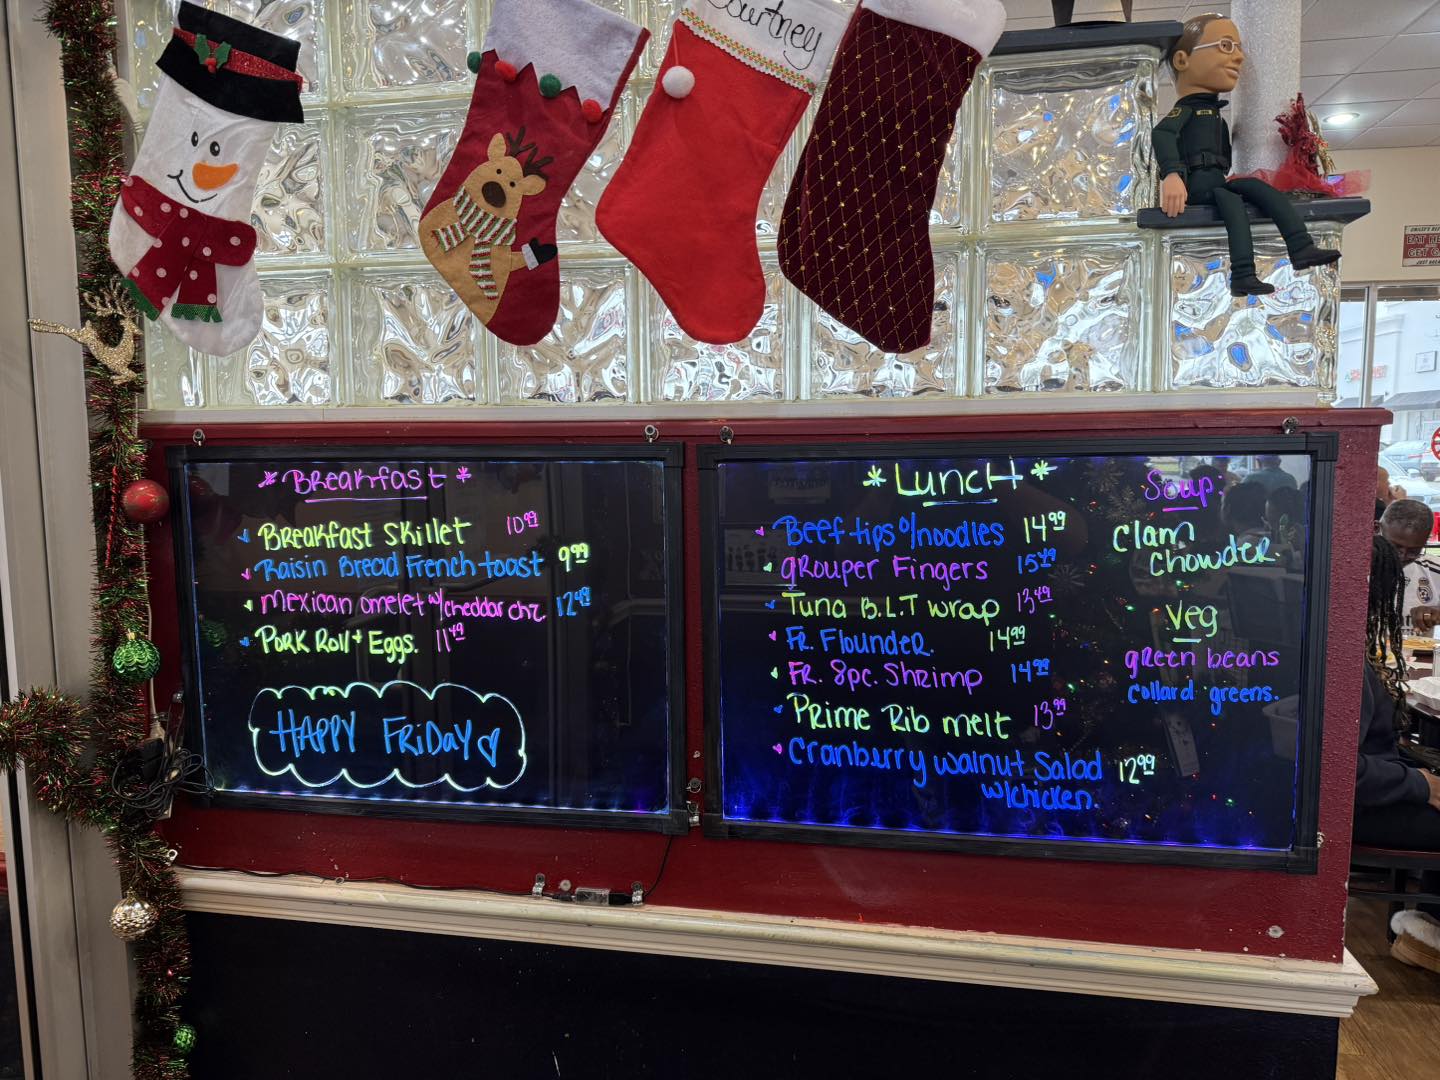 Courtney
* Breakfast *
Breakfast Skillet 10.99
Raisin Bread French toast 9.99
Mexican omelet w/cheddar chz. 12.49
Pork Roll + Eggs. 11.49
Happy Friday
* Lunch *
Beef tips o/noodles 14.99
Grouper Fingers 15.49
Tuna B.L.T wrap 13.49
Fr. Flounder. 14.99
Fr. 8pc. Shrimp 14.99
Prime Rib melt 13.99
Cranberry walnut Salad 12.99
w/chicken.
Soup:
Clam
Chowder.
Veg
green beans
collard greens.